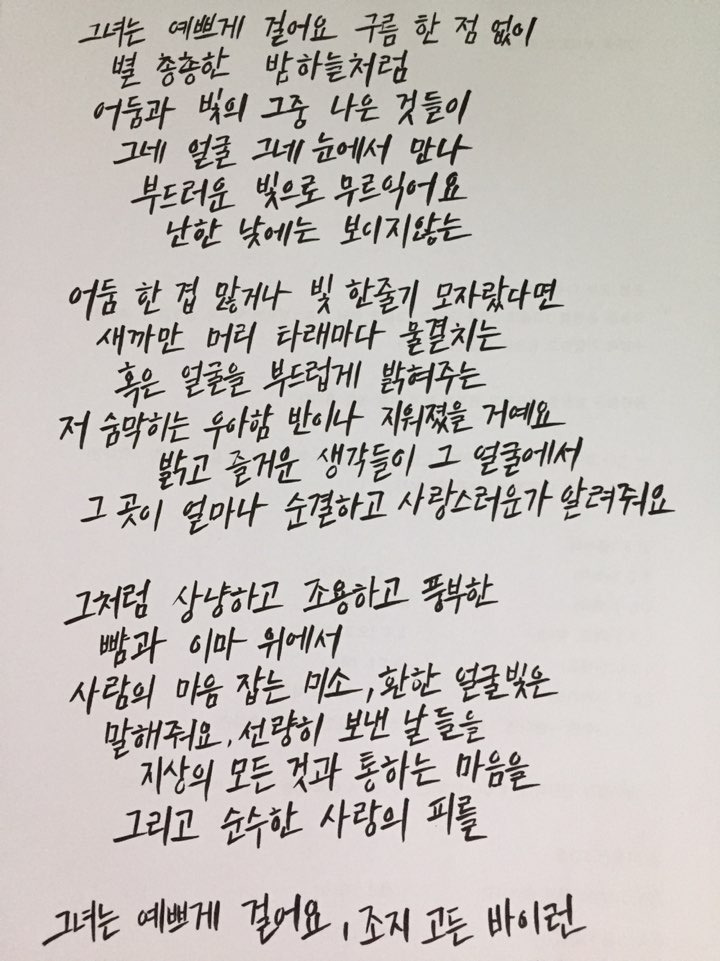 그녀는 예쁘게 걸어요 구름 한 점 없이
별 총총한 밤하늘처럼
어둠과 빛의 그중 나은 것들이
그네 얼굴 그네 눈에서 만나
부드러운 빛으로 무르익어요
난한 낮에는 보이지않는
어둠 한 겹 많거나 빛 한줄기 모자랐다면
새까만 머리 타래마다 물결치는
혹은 얼굴을 부드럽게 밝혀주는
저 숨막히는 우아함 반이나 지워졌을 거예요
밝고 즐거운 생각들이 그 얼굴에서
그 곳이 얼마나 순결하고 사랑스러운가 알려줘요
그처럼 상냥하고 조용하고 풍부한
뺨과 이마 위에서
사람의 마음 잡는 미소, 환한 얼굴빛은
말해줘요, 선량히 보낸 날들을
지상의 모든 것과 통하는 마음을
그리고 순수한 사랑의 피를
그녀는 예쁘게 걸어요, 조지 고든 바이런